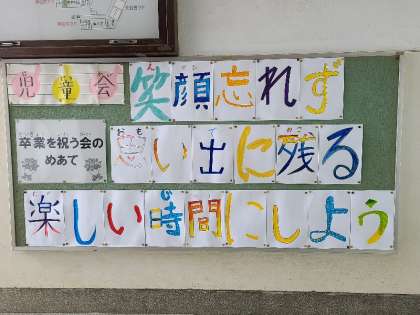 児童会
笑顔忘れず
卒業を祝う会の
めあて
思い出に残る
楽しい時間にしよう